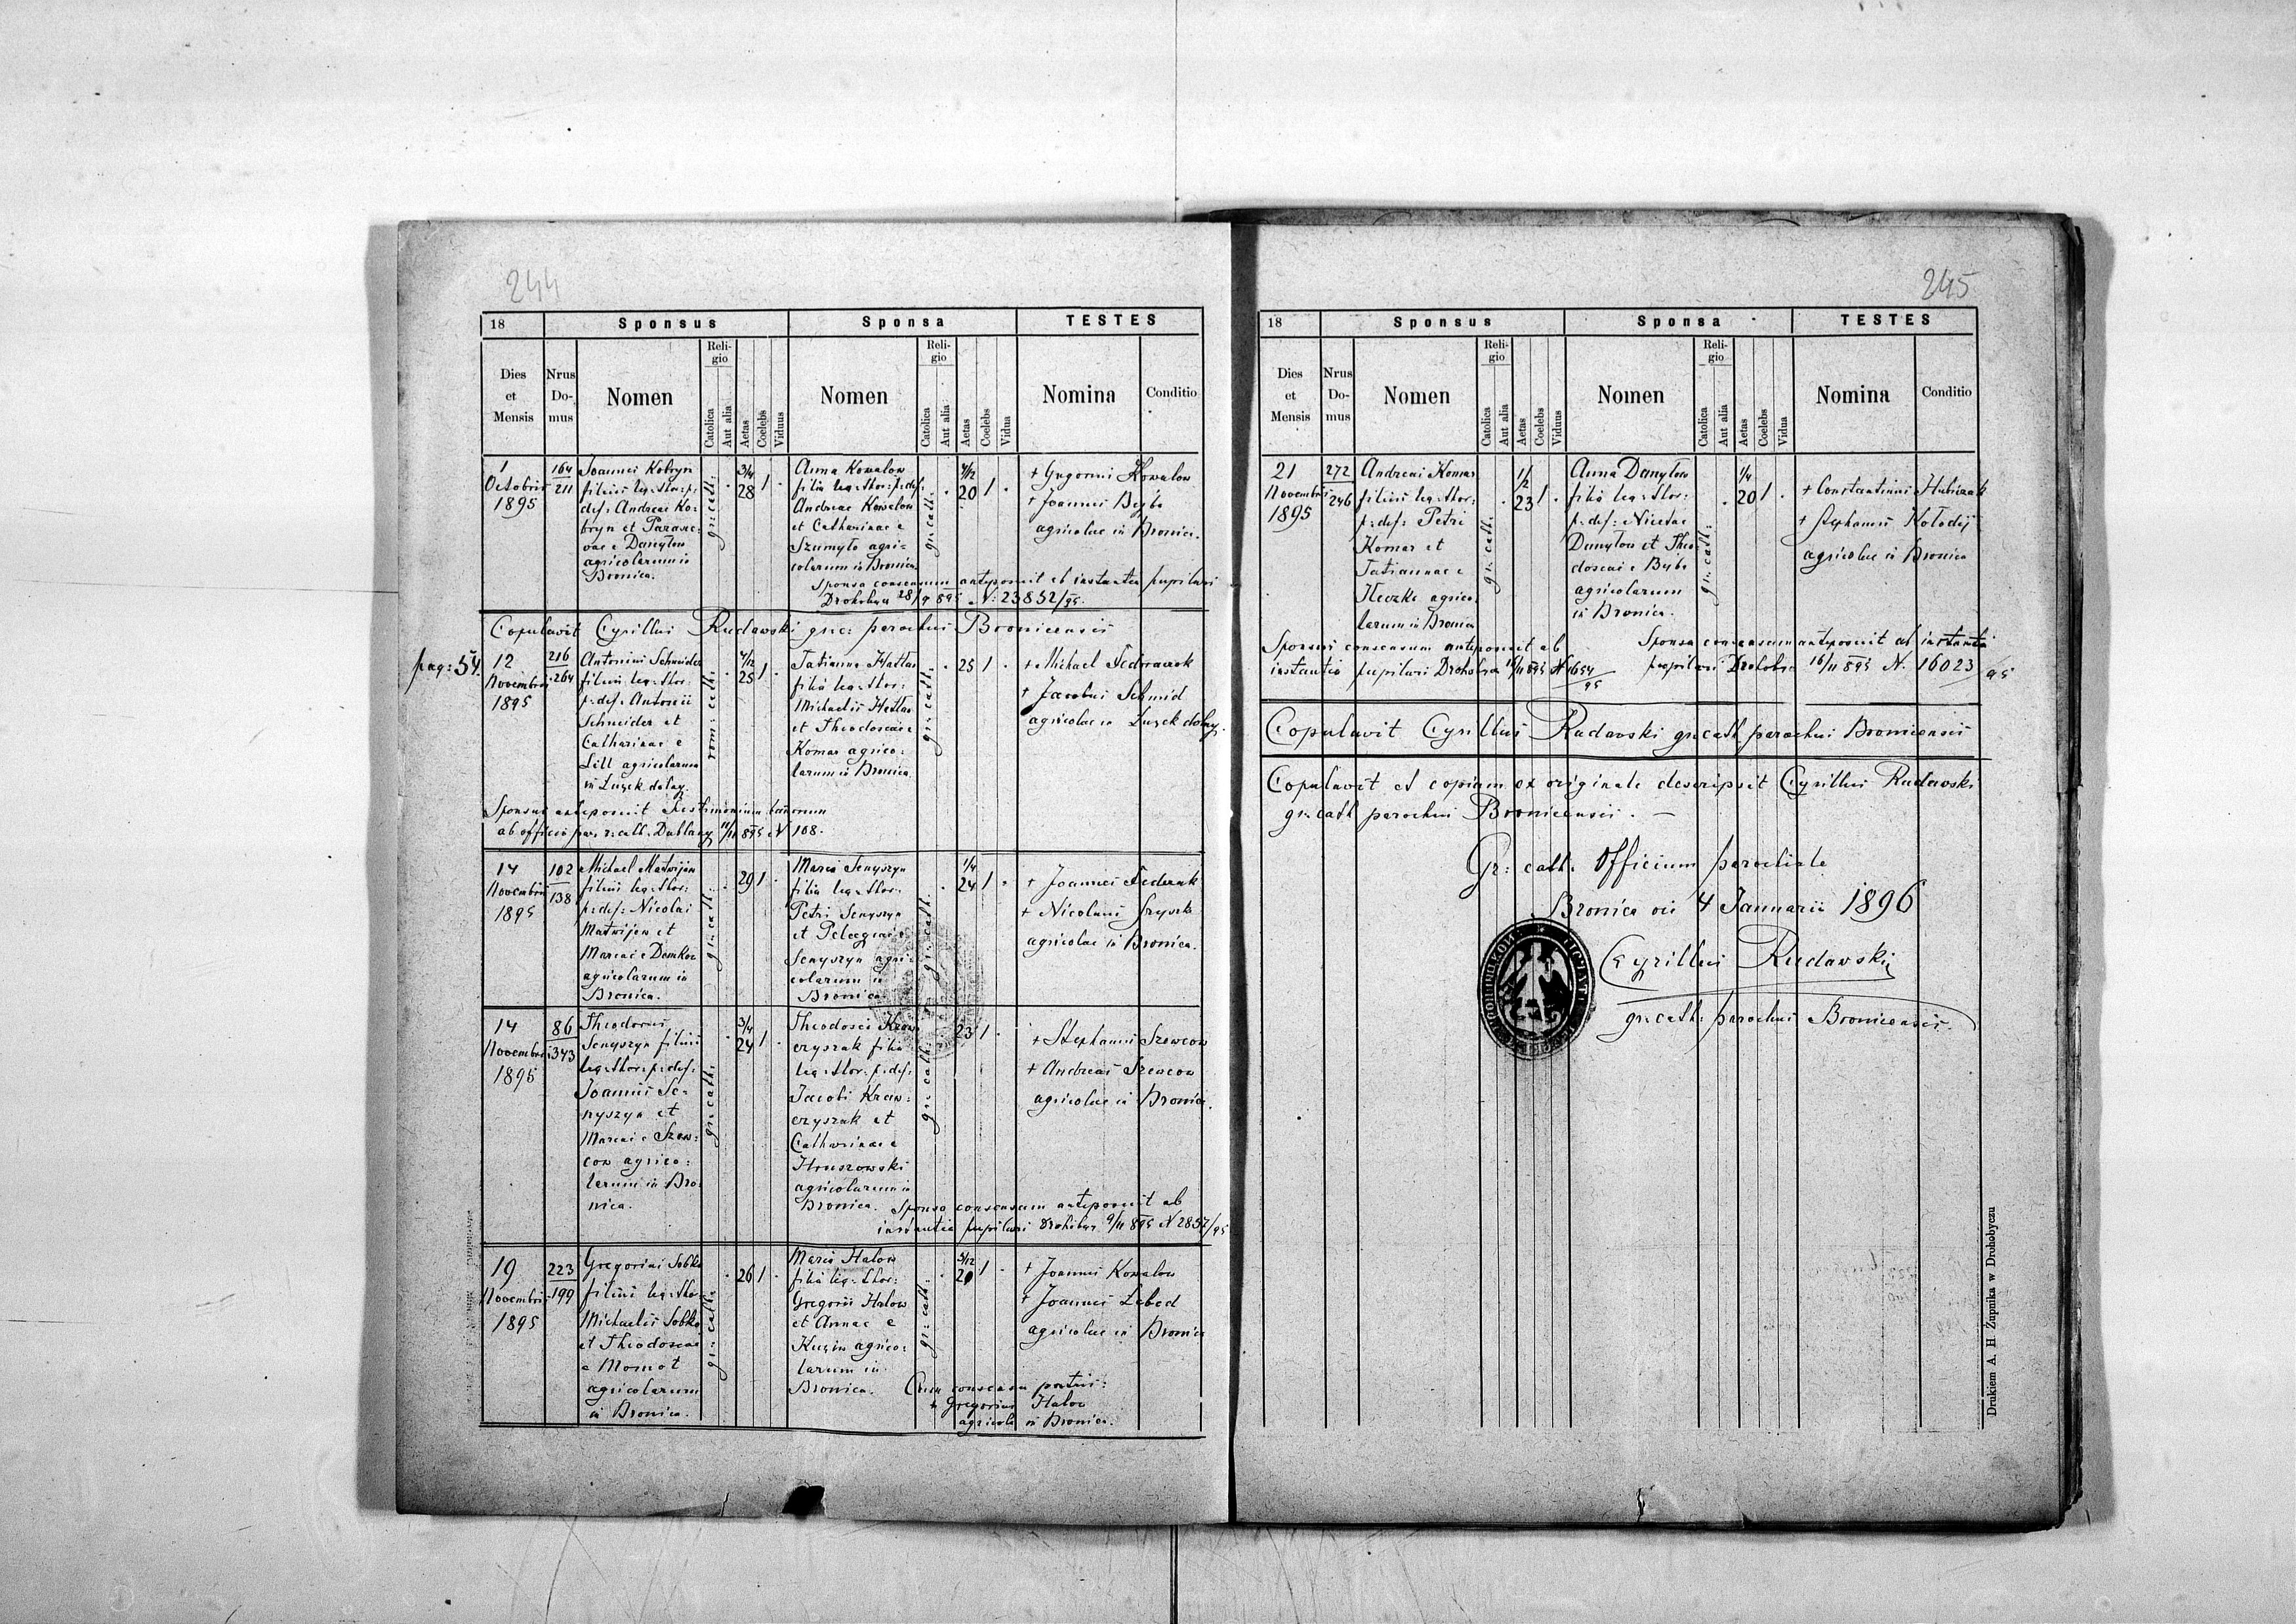 244
18 Sponsus Sponsa TESTES
Dies et Mensis
Nrus Do- mus
Nomen
Reli- gio
Catolica
Aut alia
Aetas
Coelebs
Viduus
Nomen
Reli- gio
Catolica
Aut alia
Aetas
Coelebs
Vidua
Nomina
Conditio
1
Octobris
1895
164
211
Joannes Kobryn
filius leg: thor: p:
def: Andreae Ko-
bryn et Parasce-
vae e Danyłow
agricolarum in
Bronica.
gr: cath:
3/4
28
1
Anna Kowalow
filia leg: thor: p: def:
Andreae Kowalow
et Catharinae e
Szumyło agri-
colarum in Bronica.
gr: cath:
20
1
+ Gregorius Kowalow
+ Joannes Bybe
agricolae in Bronica.
Sponsa consensum anteposuit ab instantia pupilari
Drohobycz 28/9 895 N: 23852/95.
Copulavit Cyrillus Rudawski gr: c: parochus Bronicensis
pag: 54.
12
Novembris
1895
216
264
Antonius Schneider
filius leg: thor:
p: def: Antonii
Schneider et
Catharinae e
Lill agricolarum
in Łużek dolny.
rom: cath:
25
1
Tatianna Hatłas
filia leg: thor:
Michaelis Hatłas
et Theodosiae e
Komar agrico:
larum in Bronica.
gr: cath:
25
1
+ Michael Fedorczak
+ Jacobus Schmid
agricolae in Łużek dolny.
Sponsus anteposuit testimonium bannorum
ab officio par: r: cath: Dublany 11/11 895 N 108.
14
Novembris
1895
102
138
Michael Matwijow
filius leg: thor:
p: def: Nicolai
Matwijow et
Mariae e Domkow
agricolarum in
Bronica.
gr: cath:
29
1
Maria Senyszyn
filia leg: thor:
Petri Senyszyn
et Pelagiae e
Senyszyn agri-
colarum in
Bronica
gr: cath:
1/4
24
1
+ Joannes Federak
+ Nicolaus
agricolae in Bronica.
14
Novembris
1895
86
343
Theodorus
Senyszyn filius
leg: thor: p: def:
Joannis Se-
nyszyn et
Mariae e Szew-
cow agrico:
larum in Bro
nica.
gr: cath:
3/4
24
1
Theodosia Kraw-
czyszak filia
leg: thor: p: def:
Jacobi Kraw:
czyszak et
Catharinae e
Hruszowski
agricolarum in
Bronica.
gr: cath:
23
1
+ Stephanus Szewcow
+ Andreas Szewcow
agricolae in Bronica.
Sponsa consensum anteposuit ab
instantia pupilari Drohobycz 9/11 895 N 2857/95
19
Novembris
1895
223
199
Gregorius Sobko
filius leg: thor
Michaelis Sobko
et Theodosiae
e Momot
agricolarum
in Bronica.
gr: cath:
26
1
Maria Hałow
filia leg: thor:
Gregorii Hałow
et Annae e
Kuzin agrico:
larum in
Bronica.
gr: cath:
20
1
+ Joannes Kowalow
+ Joannes Lebed
agricolae in Bronica
Cum consensu patris:
+ Gregorius Hałow
agricola in Bronica.
245
18 Sponsus Sponsa TESTES
Dies et Mensis
Nrus Do- mus
Nomen
Reli- gio
Catolica
Aut alia
Aetas
Coelebs
Viduus
Nomen
Reli- gio
Catolica
Aut alia
Aetas
Coelebs
Vidua
Nomina
Conditio
21
Novembris
1895
272
246
Andreas Komar
filius leg: thor:
p: def: Petri
Komar et
Tatiannae e
agrico
larum in Bronica
gr: cath:
1/2
23
1
Anna Danyłow
filia leg: thor:
p: def: Nicetae
Danyłow et Theo
dosiae e Bybe
agricolarum
in Bronica.
gr: cath:
1/4
20
1
+ Constantinus Hubiczak
+ Stephanus Kołodij
agricolae in Bronica
Sponsus consensum anteposuit ab
instantia pupilari Drohobycz 16/11 895 N 1654/95
Sponsa consensum anteposuit ab instantia
pupilari Drohobycz 16/11 895 N. 16023/95
Copulavit Cyrillus Rudawski gr: cath: parochus Bronicensis
Copulavit et copiam ex originale descripsit Cyrillus Rudawski
gr: cath parochus Bronicensis. —
Gr: cath. Officium parochiale
Bronica die 4 Januarii 1896
Cyrillus Rudawski
gr: cath: parochus Bronicensis.
Drukiem A. H Żupnika w Drohobyczu